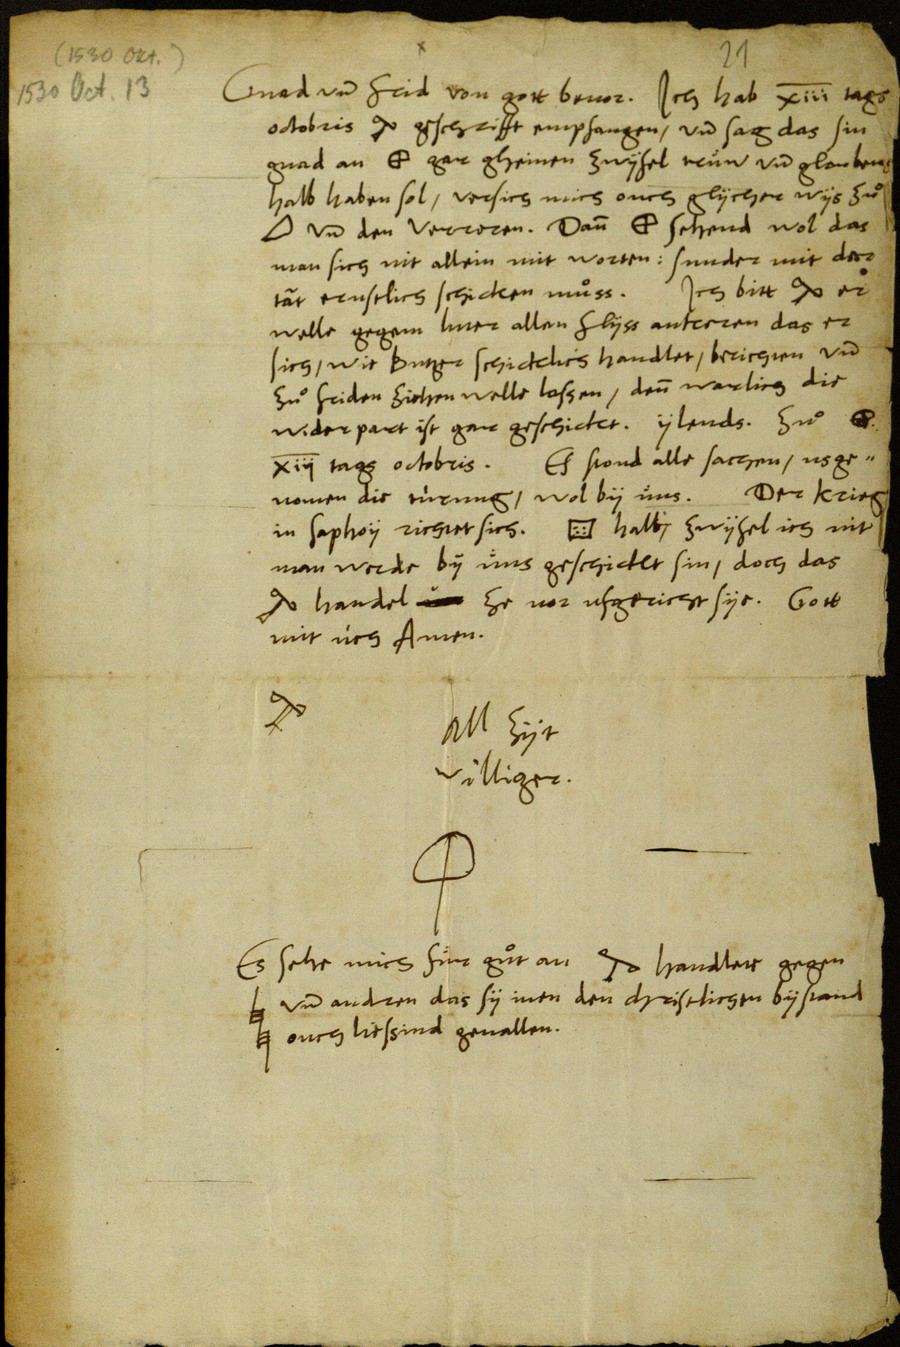 (1530 Oct.)
21
1530 Oct. 13
Gnad vn̄ frid von gott beuor. Ich hab xiii tags
octobris geschrifft empfangen / vn̄ sag das sin
gnad an gar gheinen zwyfel trüw vn̄ gloubens
halb haben sol / versich mich ouch glycher wys zů
vn̄ den Verreren. Dan̄ sehend wol das
man sich nit allein mit worten : sunder mit der
tāt ernstlich schicken můss. Ich bitt er
welle gegem allen flyss ankeren das er
sich / wie Butzer schicklich handlet / berichten vn̄
zů friden ziehen welle lassen / den̄ warlich die
widerpart ist gar geschickt. ylends. Zů
xiij tags octobris. Es stond alle sachen / usge〃
nomen die türung / wol by üns. Der krieg
in saphoy richtet sich. halb / zwyfel ich nit
man werde by üns geschickt sin / doch das
handel ze vor ufgericht sije. Gott
mit üch Amen.
All zyt
williger.
Es sehe mich für gůt an handlete gegen
vn̄ andren das sy inen den christlichen bystand
ouch liessind geuallen.